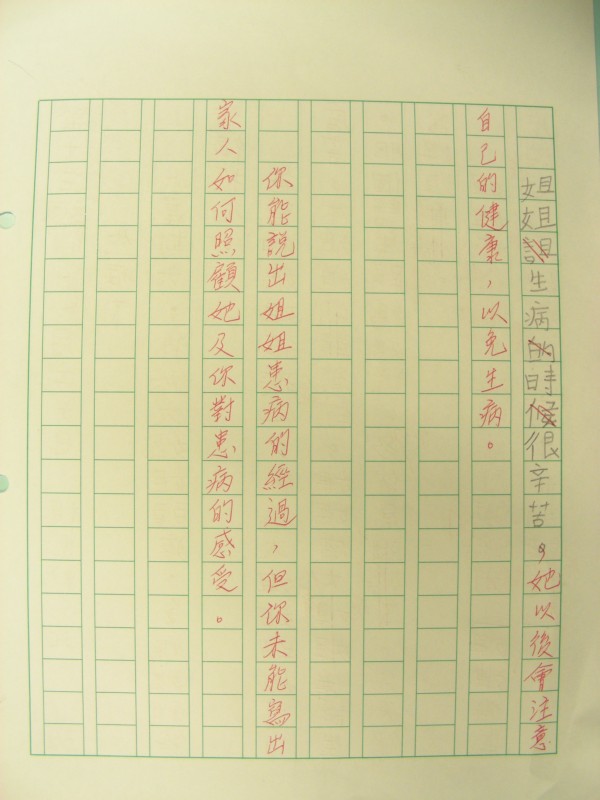 姐姐説生病的時候很辛苦，她以後會注意
自己的健康，以免生病。
你能説出姐姐患病的經過，但你未能寫出
家人如何照顧她及你對患病的感受。